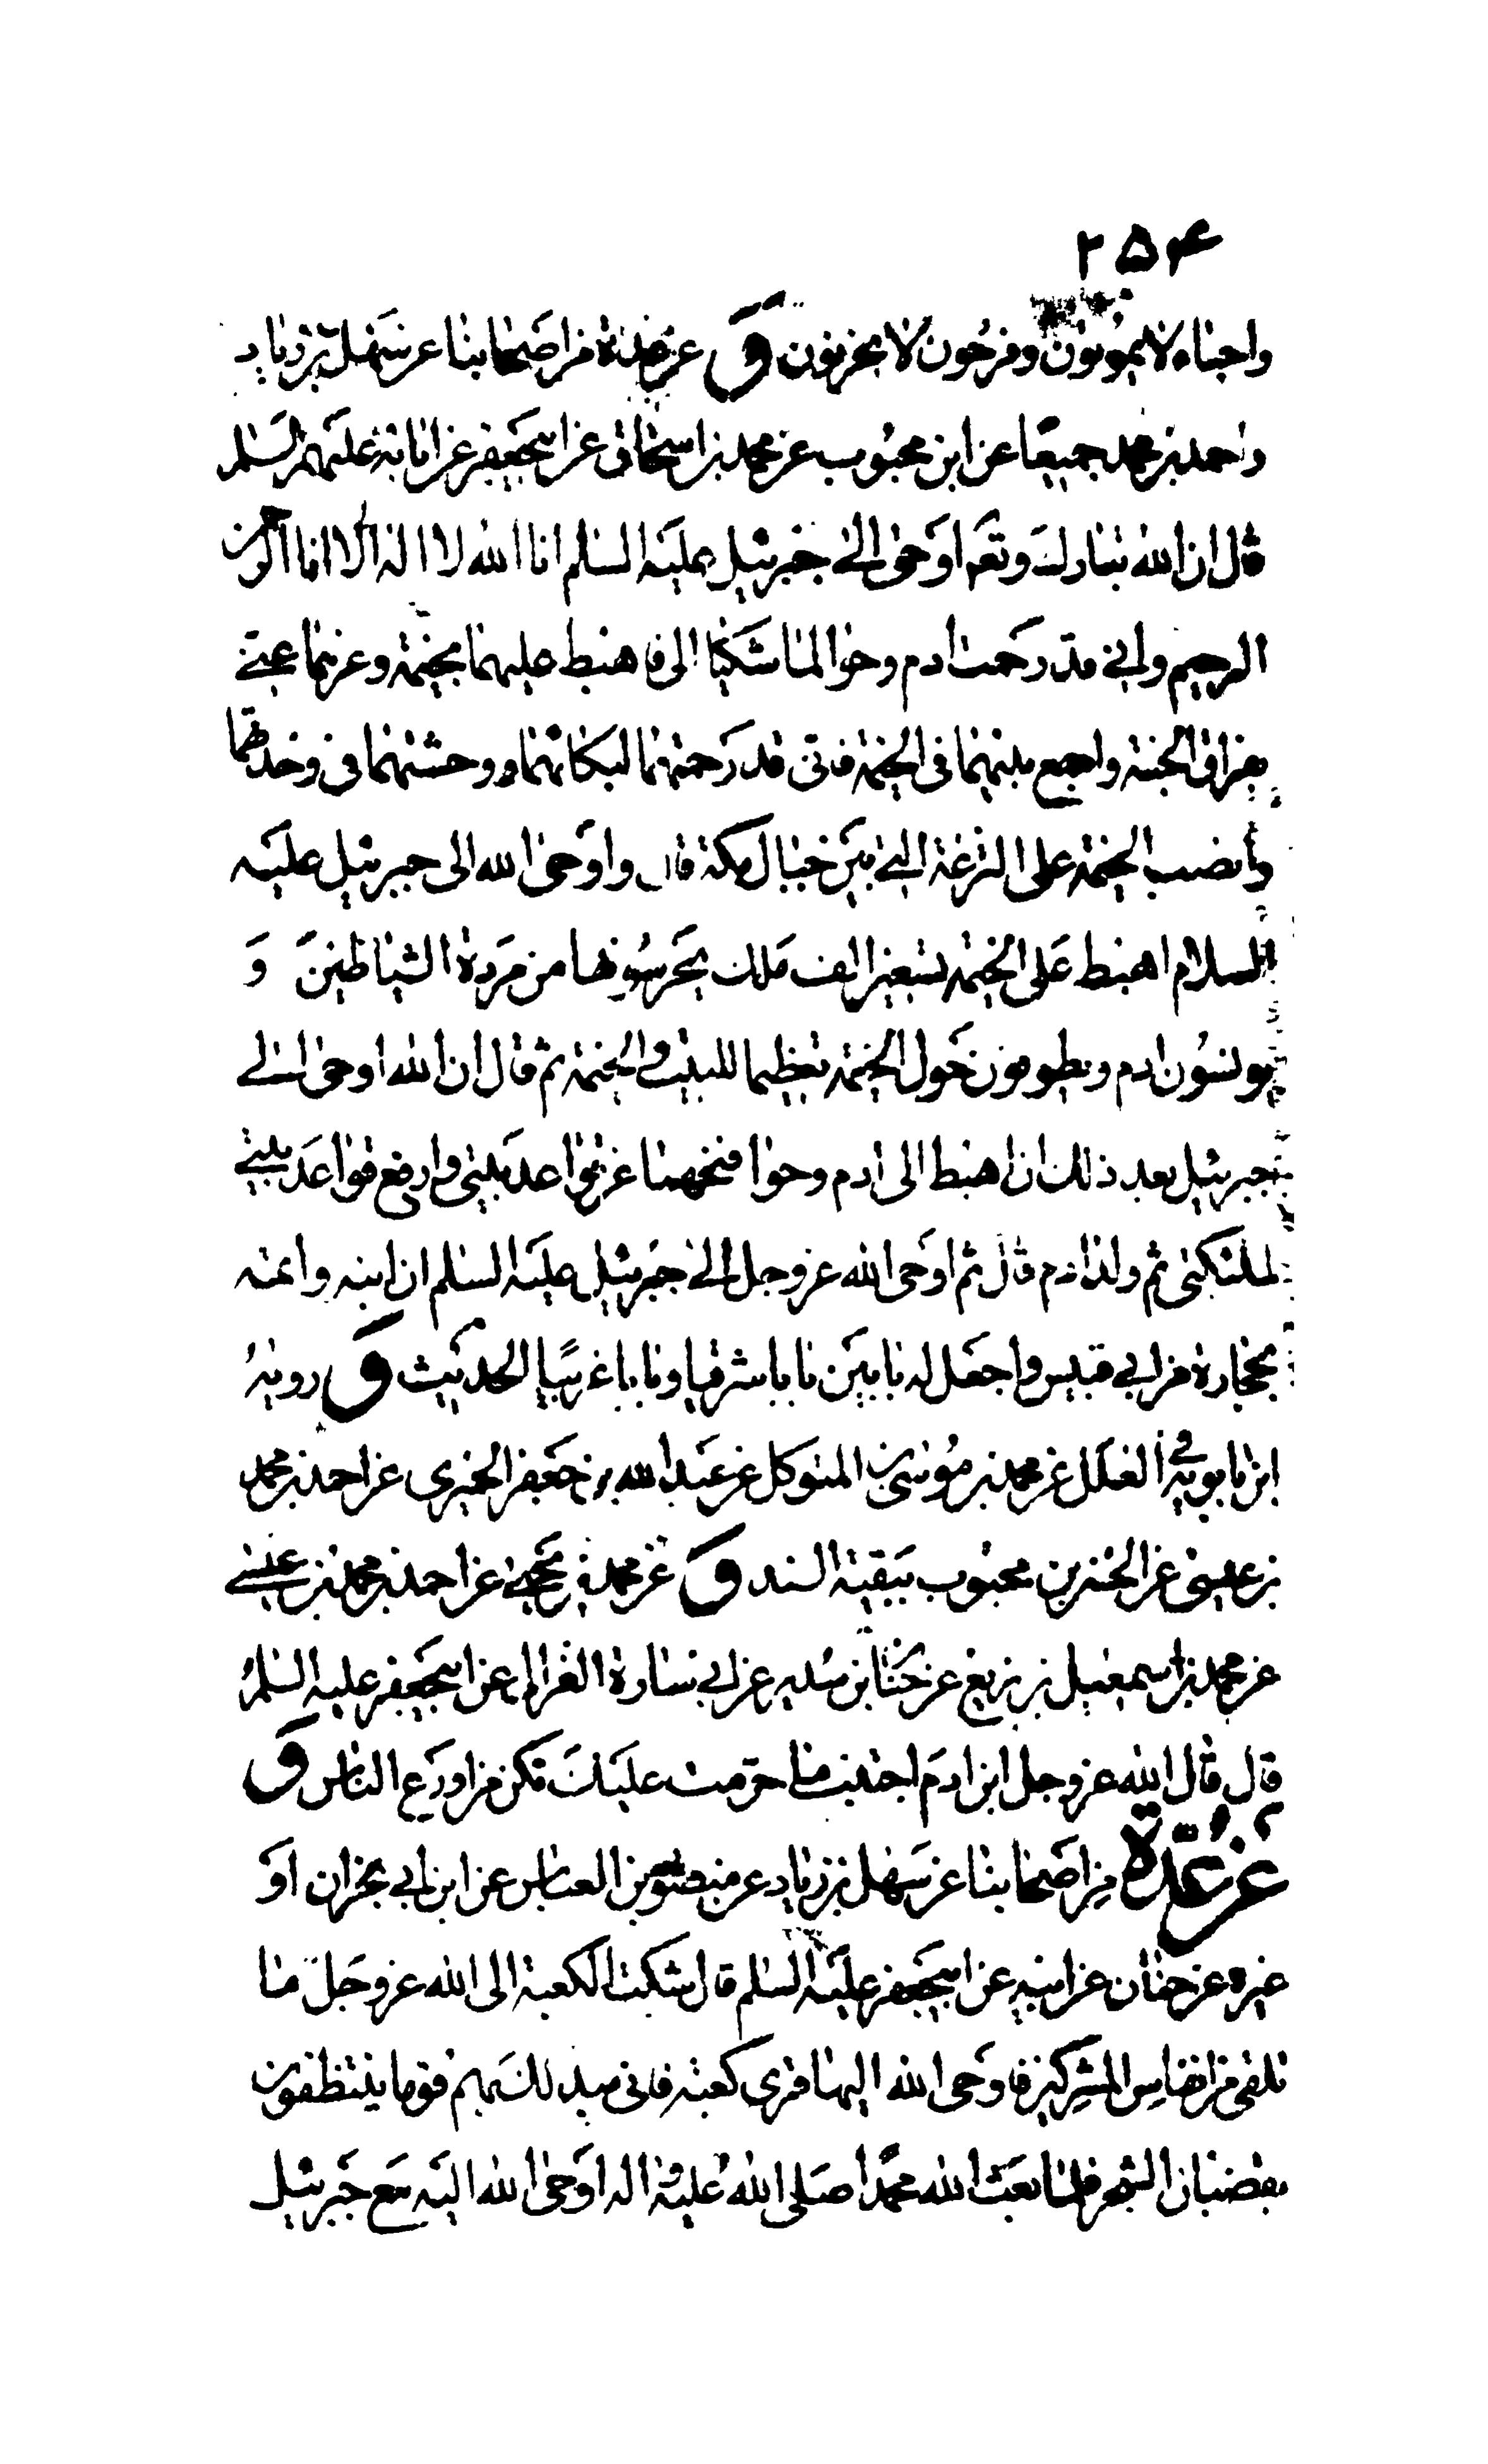 ۲۵۴
واحياء لا يموتون وفرحون لا يحزنون و عن عدة من اصحابنا عن سهل بن زياد
واحمد بن محمد جميعا عن ابن محبوب عن محمد بن اسحاق عن ابيجعفر عن ابائه عليهم السلم
قال ان الله تبارك وتعم اوحى الى جبرئيل عليه السلم انا الله لا اله الا انا الرحمن
الرحيم واني قد رحمت ادم وحوا لما شكيا الى فاهبط عليهما بخيمة وعزهما عني
بفراق الجنة واجمع بينهما في الخيمة فاني قد رحمتهما لبكائهما ووحشتهما في وحدتهما
وانصب الخيمة على الترعة التي بين جبال مكة قال واوحى الله الى جبرئيل عليه
السلام اهبط على الخيمة بسبعين الف ملك يحرسونها من مردة الشياطين و
يونسون ادم ويطوفون حول الخيمة تعظيما للبيت والخيمة ثم قال ان الله اوحى الى
جبرئيل بعد ذلك ان اهبط الى ادم وحوا فنحهما عن قواعد بيتي وارفع قواعد بيتي
لملئكتي ثم ولد ادم قال ثم اوحى الله عز وجل الى جبرئيل عليه السلم ان ابنه واتمه
بحجارة من ابي قبيس واجعل له بابين بابا شرقيا وبابا غربيا الحديث و رويه
ابن بابويه في العلل عن محمد بن موسى بن المتوكل عن عبد الله بن جعفر الحميري عن احمد بن محمد
بن عيسى عن الحسن بن محبوب ببقية السند و عن محمد بن يحيى عن احمد بن محمد بن عيسى
عن محمد بن اسمعيل بن بزيع عن حنان بن سدير عن ابي سارة الغزال عن ابيجعفر عليه السلم
قال قال الله عز وجل ابن ادم اجتنب ما حرمت عليك تكن من اورع الناس و
عن عدة من اصحابنا عن سهل بن زياد عن منصور بن العباس عن ابن ابي نجران او
غيره عن حنان عن ابيه عن ابيجعفر عليه السلم قال شكت الكعبة الى الله عز وجل ما
تلقى من انفاس المشركين فاوحى الله اليها قرى كعبة فانى مبدلك بهم قوما يتنظفون
بقضبان الشجر فلما بعث الله محمدا صلى الله عليه واله اوحى الله اليه مع جبرئيل